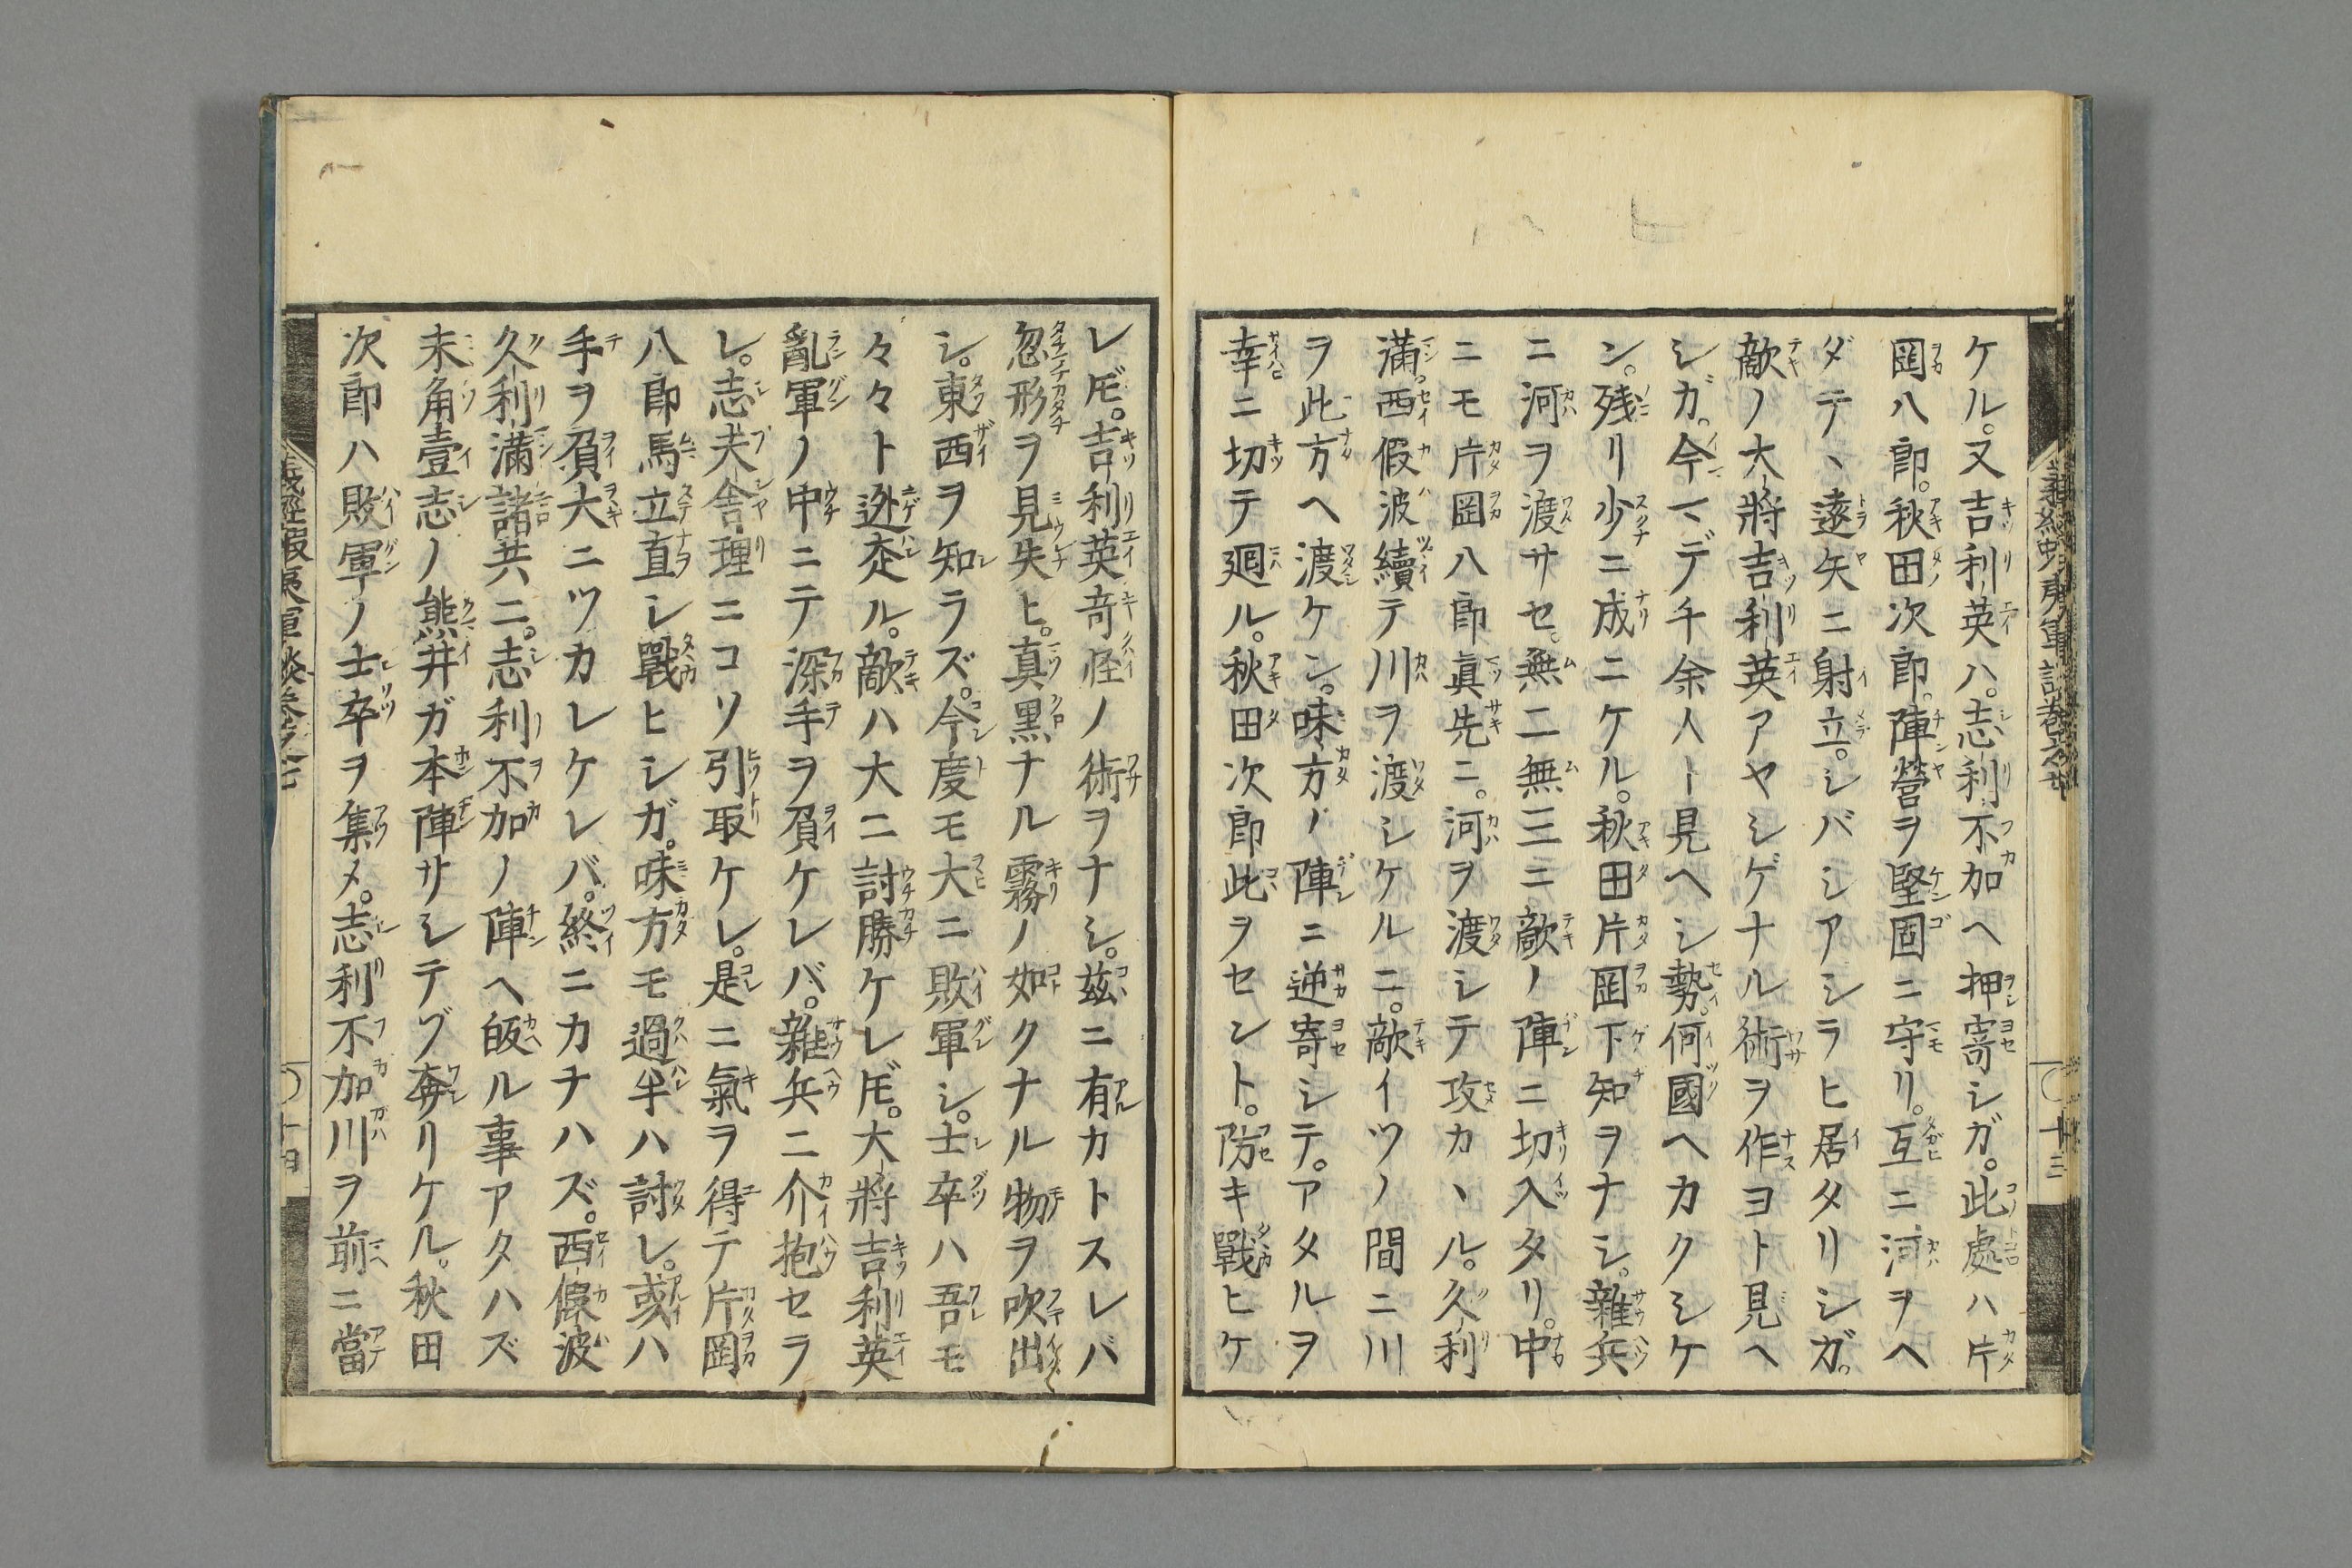 ケル。又吉利英ハ。志利不加ヘ押寄シガ。此處ハ片
岡八郎。秋田次郎。陣營ヲ堅固ニ守リ。互ニ河ヲヘ
ダテヽ遠矢ニ射立。シバシアシラヒ居タリシガ。
敵ノ大將吉利英アヤシゲナル術ヲ作ヨト見ヘ
シガ。今マデ千余人ト見ヘシ勢。何國ヘカクシケ
ン。残リ少ニ成ニケル。秋田片岡下知ヲナシ。雜兵
ニ河ヲ渡サセ。無二無三ニ敵ノ陣ニ切入タリ。中
ニモ片岡八郎眞先ニ。河ヲ渡シテ攻カヽル。久利
滿。西假波續テ川ヲ渡シケルニ。敵イツノ間ニ川
ヲ此方ヘ渡ケン。味方ノ陣ニ逆寄シテ。アタルヲ
幸ニ切テ廻ル。秋田次郎此ヲセント。防キ戰ヒケ
レ𪜈。吉利英竒怪ノ術ヲナシ。茲ニ有カトスレバ
忽形ヲ見失ヒ。真黒ナル霧ノ如クナル物ヲ吹出
シ。東西ヲ知ラズ。今度モ大ニ敗軍シ。士卒ハ吾モ
々々ト迯夲ル。敵ハ大ニ討勝ケレ𪜈。大將吉利英
亂軍ノ中ニテ深手ヲ負ケレバ。雜兵ニ介抱セラ
レ。志夫舎理ニコソ引取ケレ。是ニ氣ヲ得テ片岡
八郎馬立直シ戰ヒシガ。味方モ過半ハ討レ。或ハ
手ヲ負大ニツカレケレバ。終ニカナハズ。西假波
久利滿諸共ニ。志利不加ノ陣ヘ皈ル事アタハズ
末角壹志ノ熊井ガ本陣サシテゾ奔リケル。秋田
次郎ハ敗軍ノ士卒ヲ集メ。志利不加川ヲ前ニ當